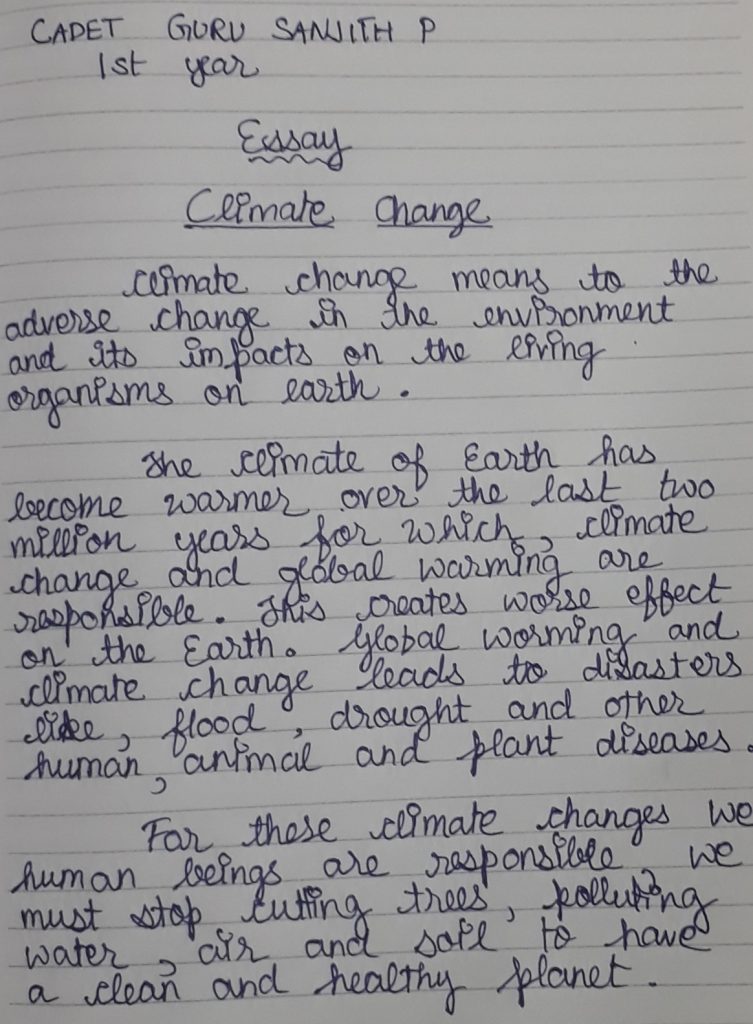 CADET GURU SANJITH P
1st year
Essay
Climate Change
climate change means to the
adverse change in the environment
and its impacts on the living
organisms on earth.
The climate of Earth has
become warmer over the last two
million years for which, climate
change and global warming are
responsible. This creates worse effect
on the Earth. Global worming and
climate change leads to disasters
like, flood, drought and other
human, animal and plant diseases.
For these climate changes we
human beings are responsible we
must stop cutting trees, polluting
water, air and soil to have
a clean and healthy planet.